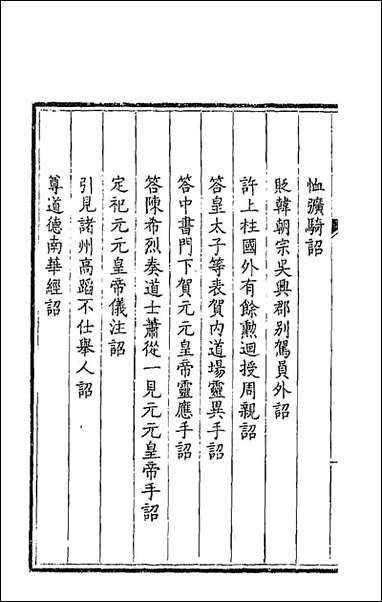 恤彍騎詔
貶韓朝宗吳興郡別駕員外詔
許上柱國外有餘勲迴授周親詔
答皇太子等表賀内道場靈異手詔
答中書門下賀元元皇帝靈應手詔
答陳希烈奏道士蕭從一見元元皇帝手詔
定祀元元皇帝儀注詔
引見諸州高蹈不仕舉人詔
尊道德南華經詔